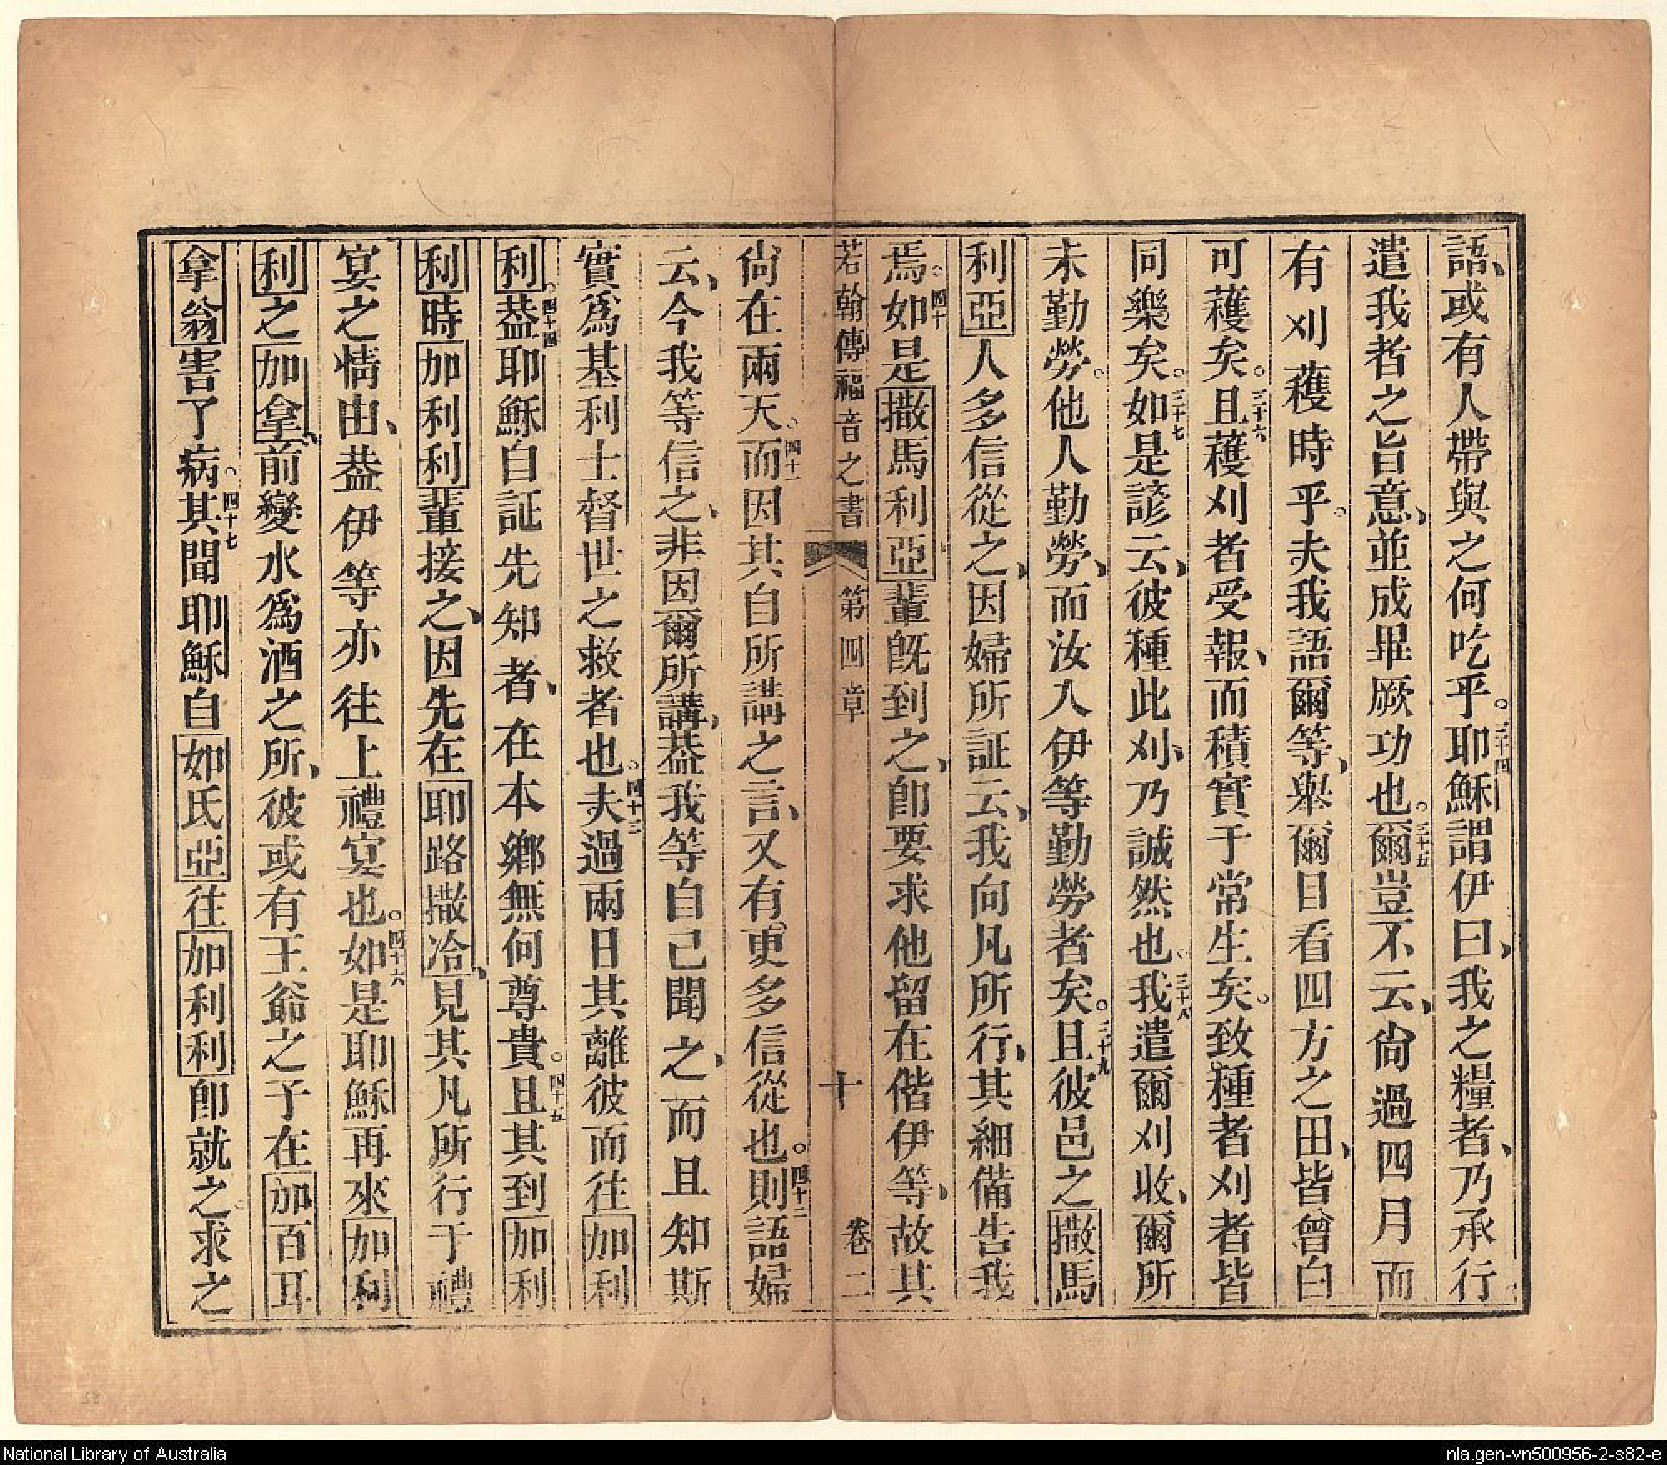 語、或有人帶與之何吃乎。三十四耶穌謂伊曰、我之糧者、乃承行
遣我者之旨意、並成畢厥功也。三十五爾豈不云、尙過四月而
有刈穫時乎。夫我語爾等、舉爾目看四方之田、皆曾白
可穫矣。三十六且穫刈者受報、而積實于常生矣。致種者刈者皆
同樂矣。三十七如是諺云、彼種此刈、乃誠然也。三十八我遣爾刈收、爾所
未勤勞。他人勤勞、而汝入伊等勤勞者矣。三十九且彼邑之撒馬
利亞人多信從之、因婦所証云、我向凡所行、其細備告我
焉。四十如是撒馬利亞輩旣到之、卽要求他留在偕伊等、故其
若翰傳福音之書 第四章 十 卷二
尙在兩天。四十一而因其自所講之言、又有更多信從也。四十二則語婦
云、今我等信之、非因爾所講、葢我等自己聞之、而且知斯
實爲基利士督世之救者也。四十三夫過兩日其離彼而往加利
利。四十四葢耶穌自証先知者、在本鄉無何尊貴。四十五且其到加利
利時加利利輩接之、因先在耶路撒冾、見其凡所行于禮
宴之情由、葢伊等亦往上禮宴也。四十六如是耶穌再來加利
利之加拿、前變水爲酒之所、彼或有王爺之子在加百耳
拿翁害了病。四十七其聞耶穌自如氏亞往加利利卽就之求之
National Library of Australia
nla.gen-vn500956-2-s82-e